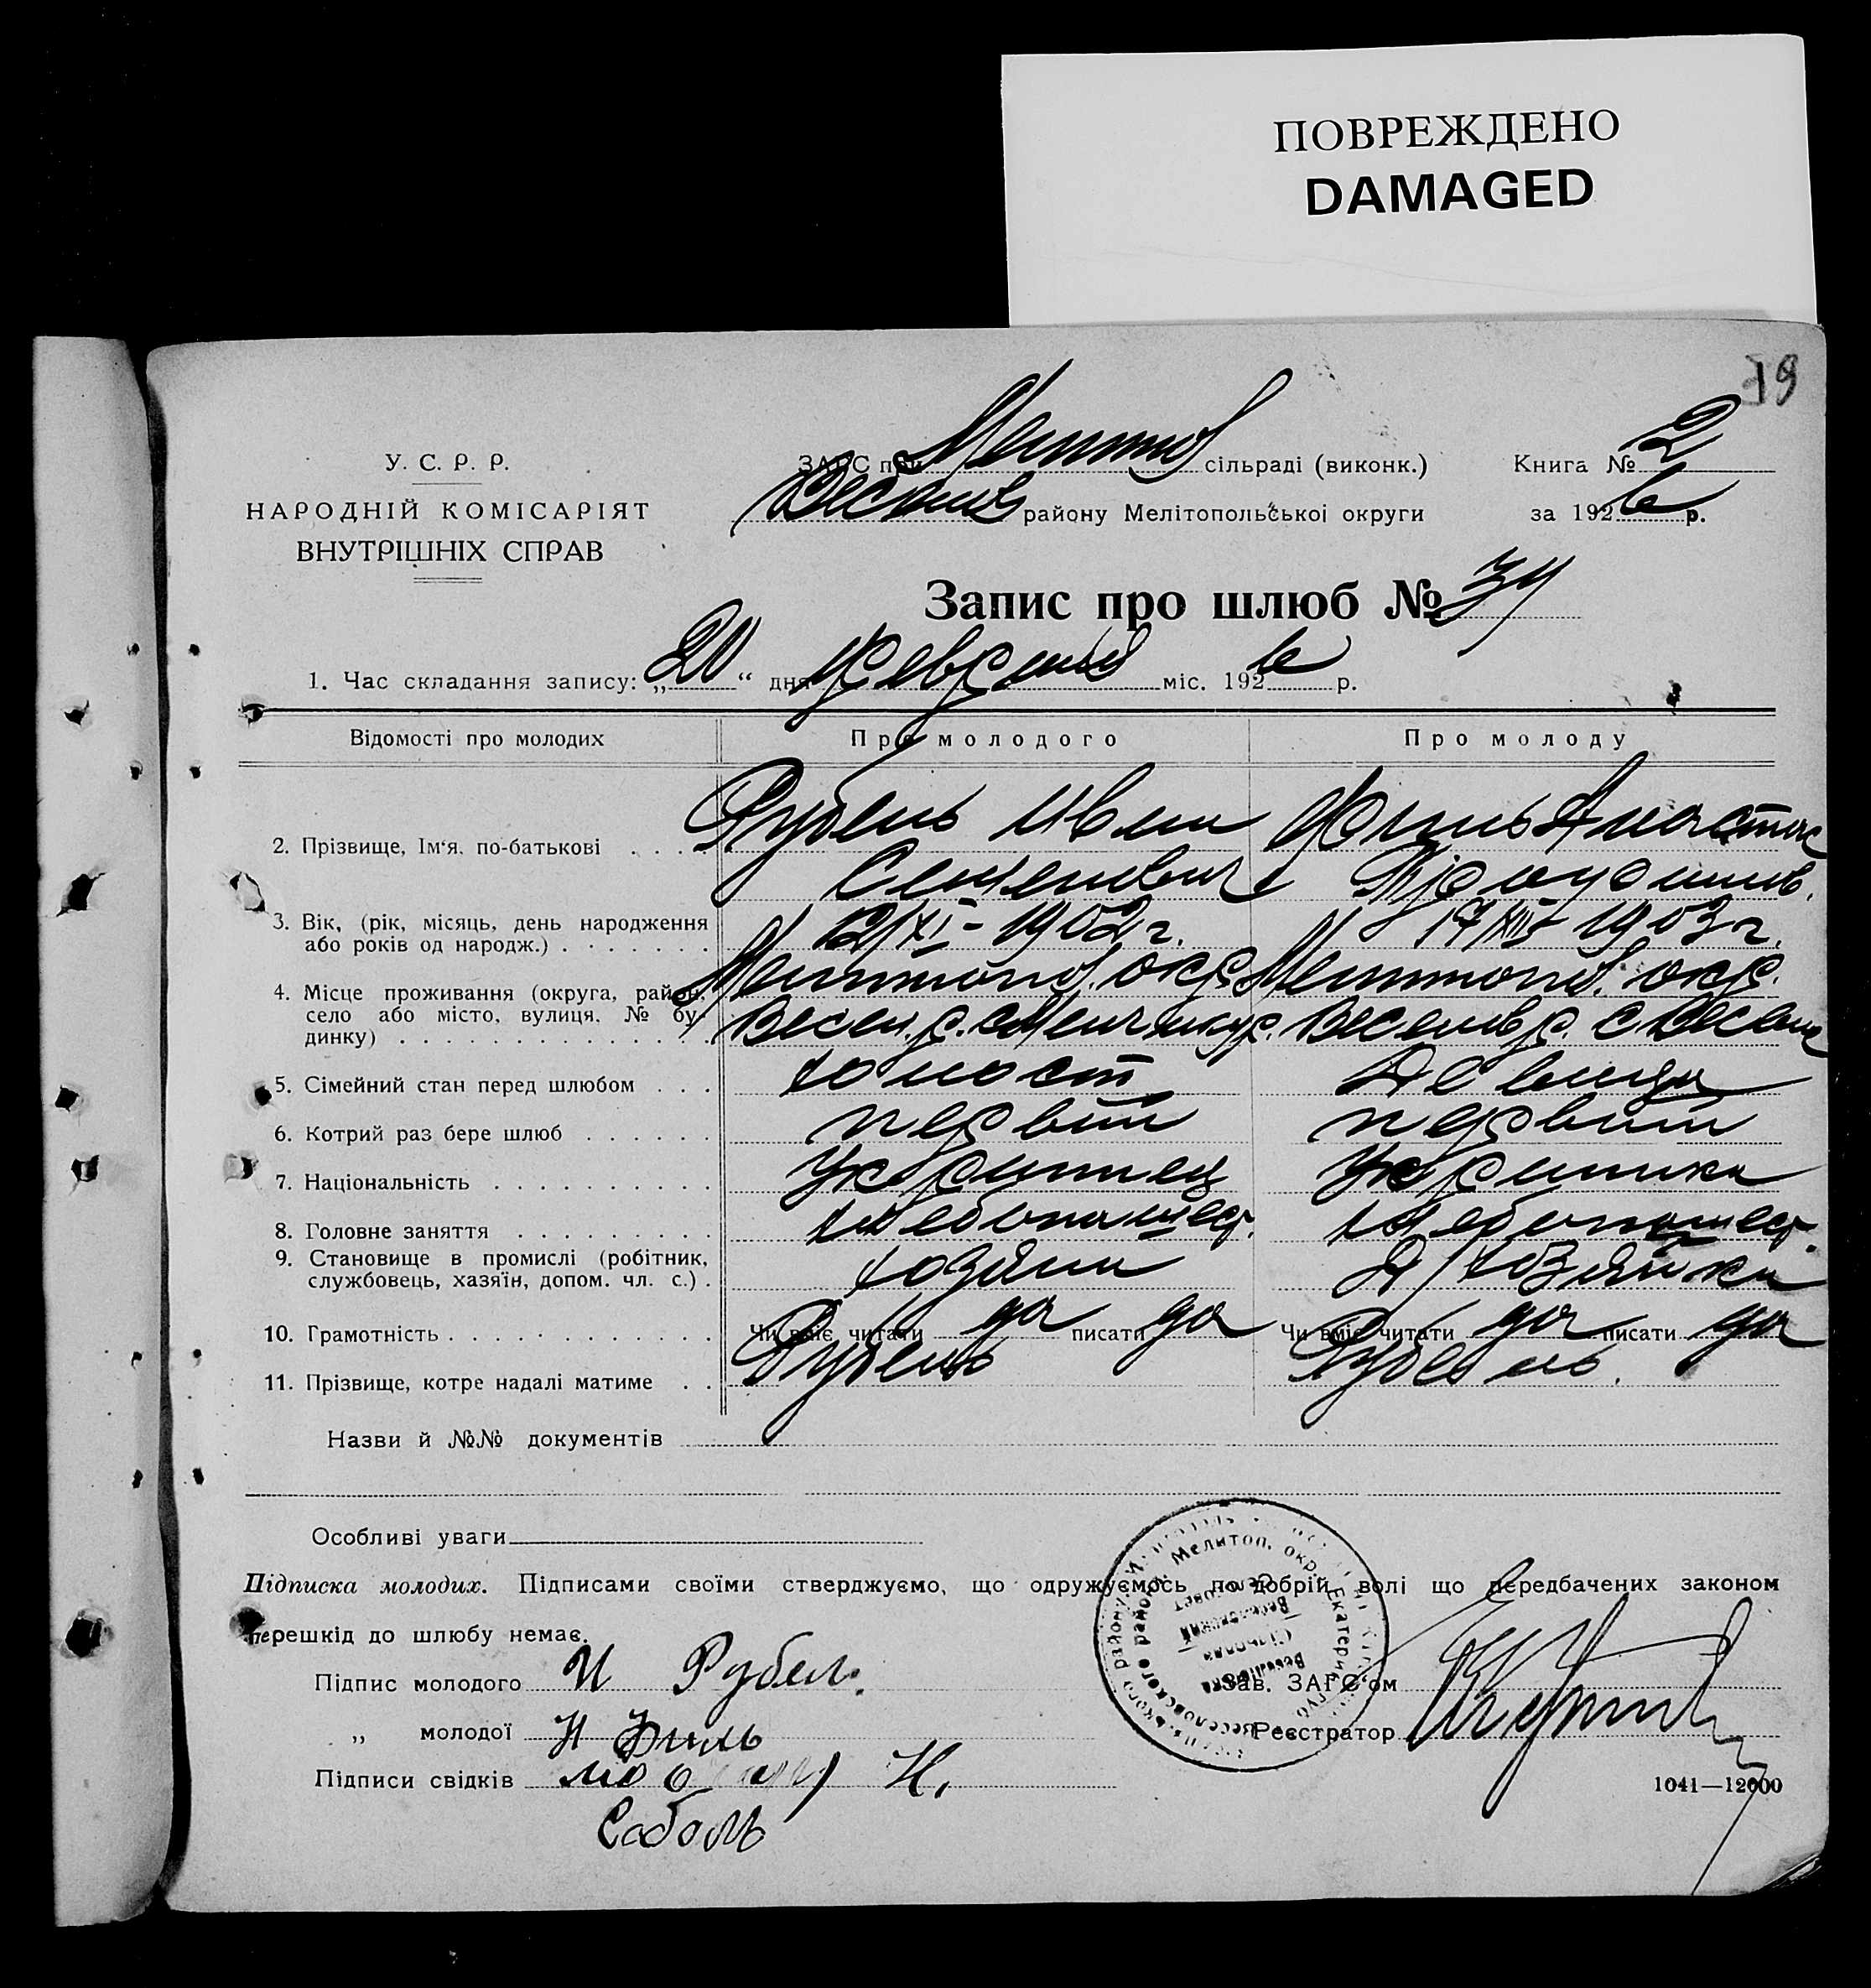 ПОВРЕЖДЕНО
DAMAGED
19
У. С. Р. Р.
НАРОДНІЙ КОМІСАРІЯТ
ВНУТРІШНІХ СПРАВ
ЗАГС при сільраді (виконк.)
району Мелітопольської округи
Книга № 2
за 1926 р.
Запис про шлюб № 34
1. Час складання запису: „20“ дня февраля міс. 1926 р.
Відомості про молодих
Про молодого
Про молоду
2. Прізвище, Ім'я, по-батькові . . . .
Рубель Иван
Семенович
Филь Анастас
3. Вік, (рік, місяць, день народження
або років од народж.) . . . . . . .
12/XI - 1902 г.
17/XII 1903 г.
4. Місце проживання (округа, район,
село або місто, вулиця, № бу-
динку) . . . . . . . . . . . . . . .
Мелитопол. окр.
Весел. р. с.
Мелитопол. окр.
Веселов р. с Весело
5. Сімейний стан перед шлюбом . . .
холост
девица
6. Котрий раз бере шлюб . . . . . .
первый
первый
7. Національність . . . . . . . . . .
Украинец
Украинка
8. Головне заняття . . . . . . . . .
хлебопашец.
хлебопашец.
9. Становище в промислі (робітник,
службовець, хазяїн, допом. чл. с.) .
хозяин
д/хозяйка
10. Грамотність . . . . . . . . . . . .
Чи вміє читати да писати да
Чи вміє читати да писати да
11. Прізвище, котре надалі матиме . .
Рубель
Рубель.
Назви й №№ документів
Особливі уваги
Підписка молодих. Підписами своїми стверджуємо, що одружуємось по добрій волі що передбачених законом
перешкід до шлюбу немає.
Підпис молодого И Рубел.
„ молодої Н Филь
Підписи свідків Н.
Соболь
Зав. ЗАГС'ом
Реєстратор
Веселовского района Мелитоп. окр. Екатерин. губ.
Веселовский
Сельсовет
1041—12000